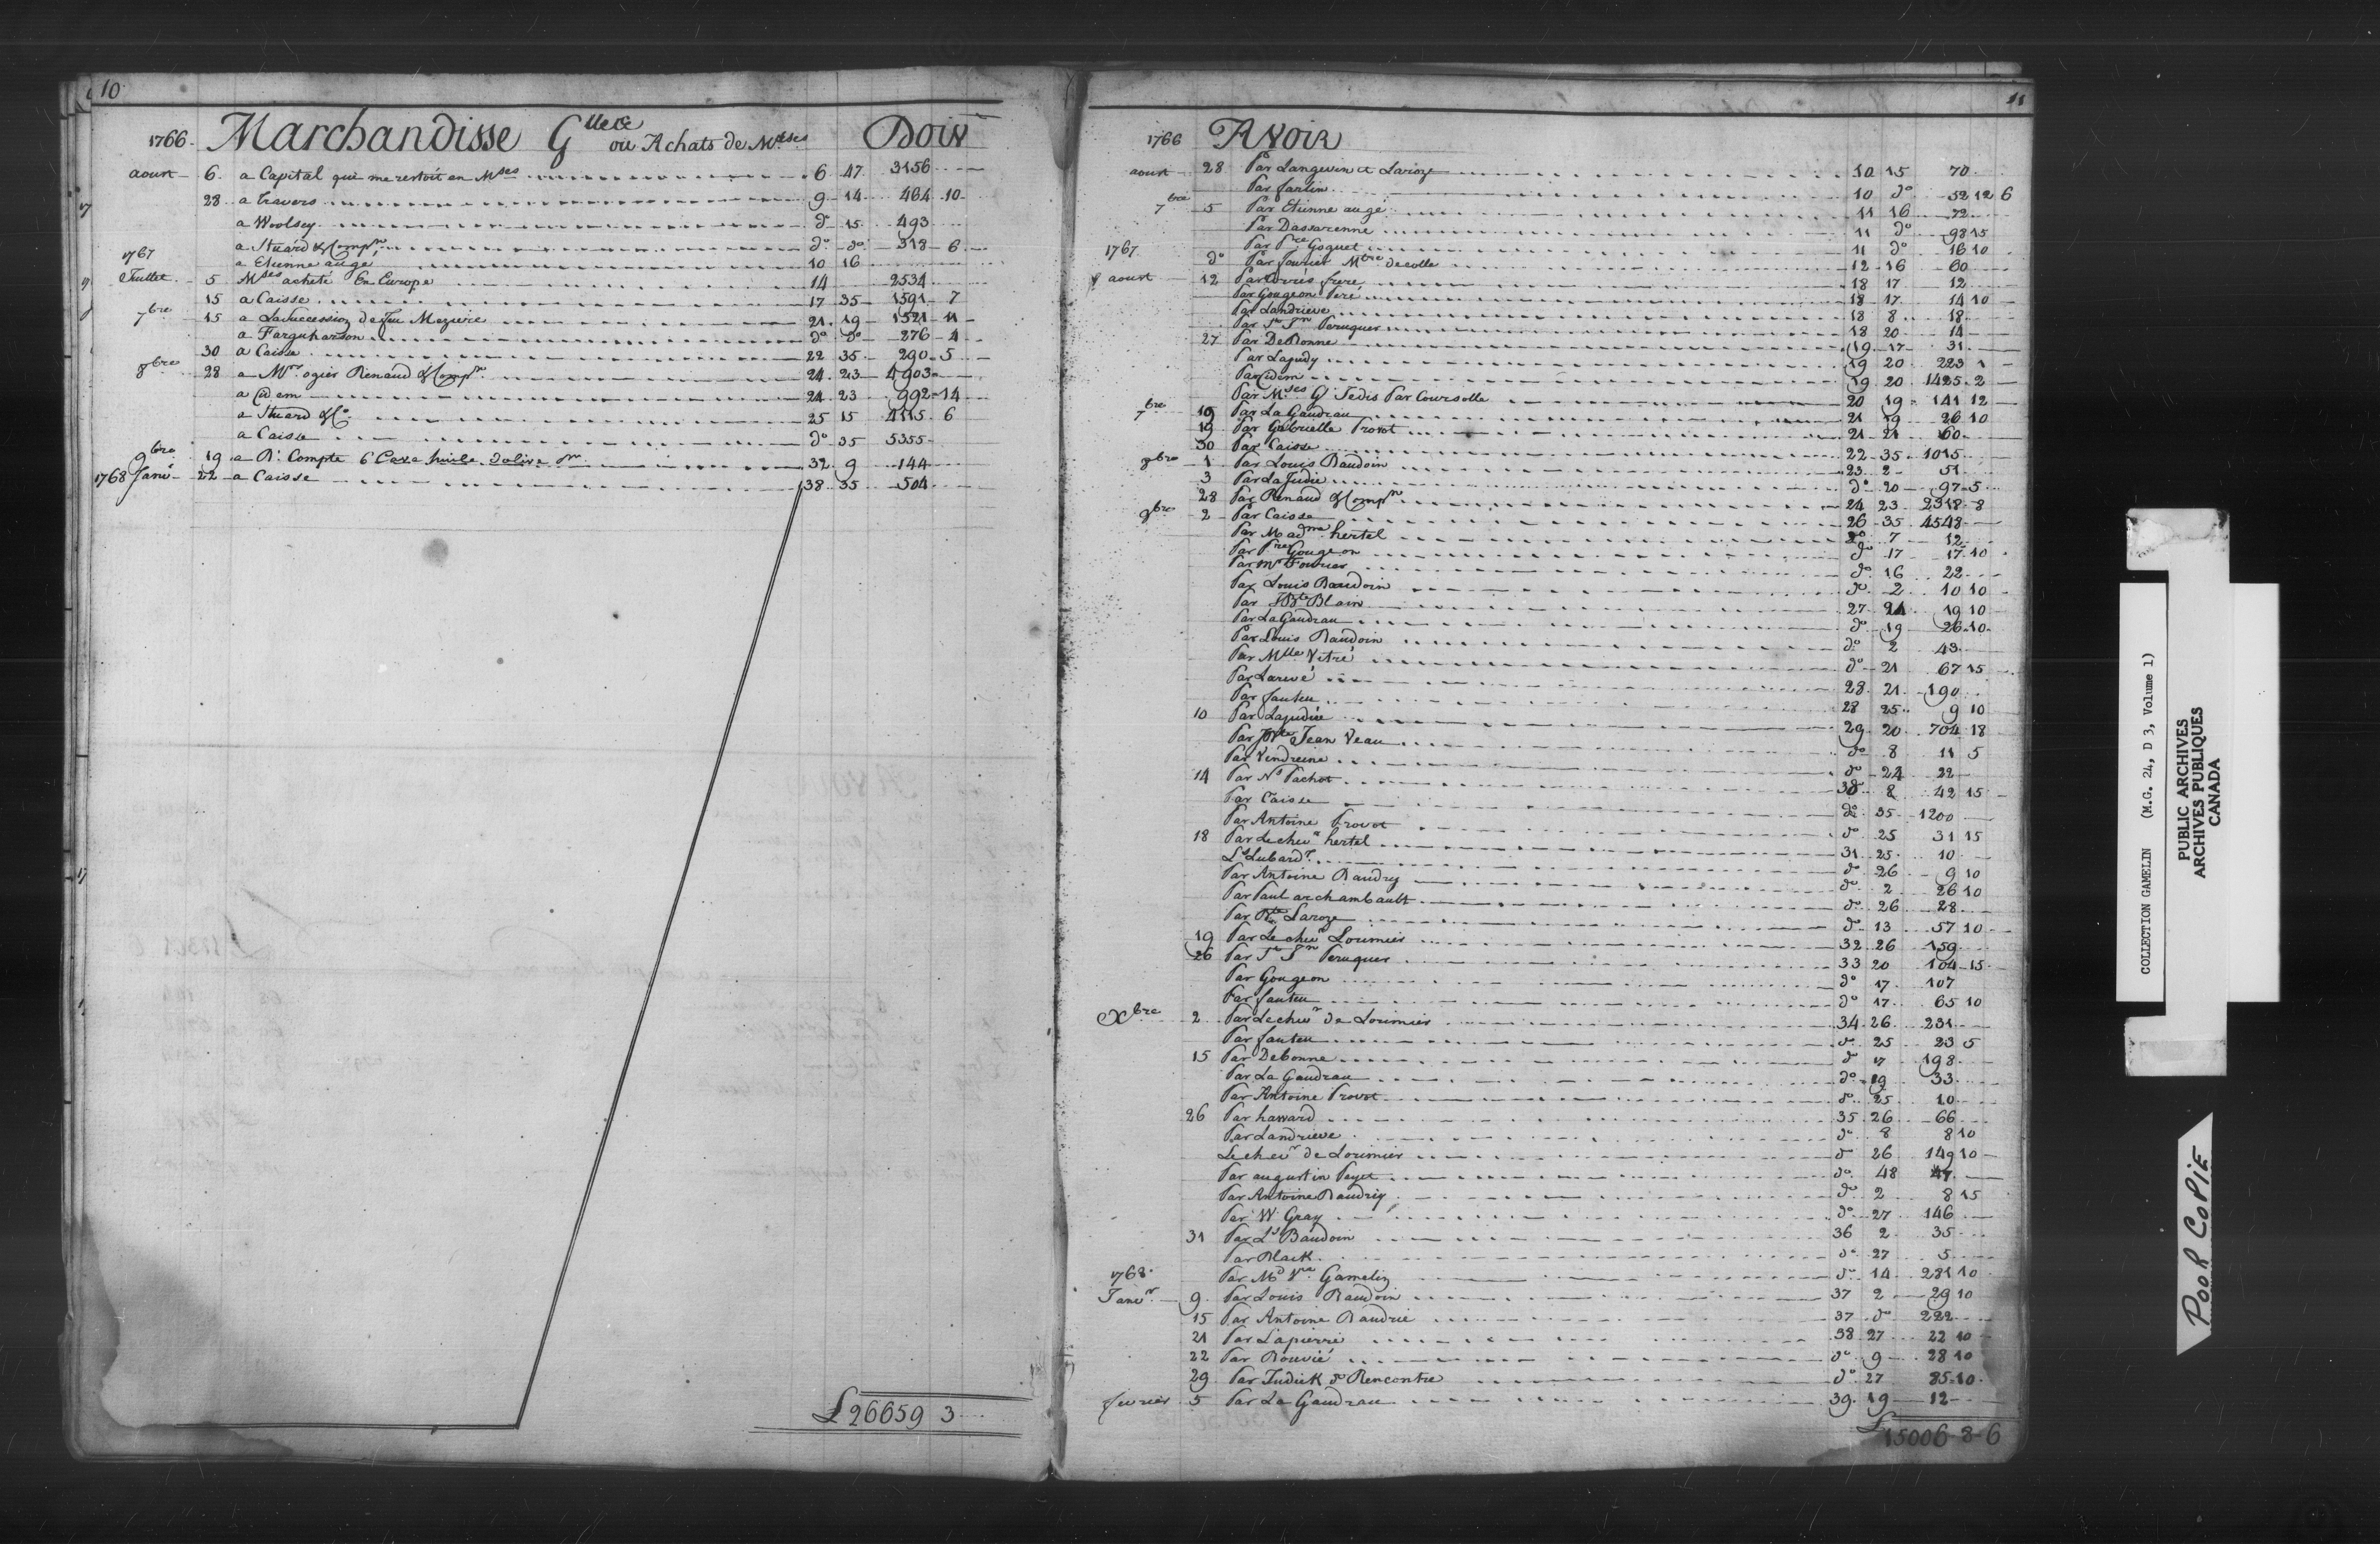 10
1766. Marchandisse G^lle&c ou Achats de M^dses Doiv
aoust 6. a Capital qui me restoit en M^ses 6 47 3156
28 a Travers 9 14 464 10
a Woolsey d° 15 493
a Stuard & Comp^n d° d° 318 6
1767 a Etienne augé 10 16
Juillet 5 M^ses acheté En Europe 14 2534
15 a Caisse 17 35 1591 7
7^bre 15 a La Succession de feu Meziere 21 19 1521 11
a Farguharson d° d° 276 4
30 a Caisse 22 35 290 5
8^bre 28 a M^rs ogier Renaud & Comp^n 24 23 4903
a idem 24 23 992 14
a Stuard & C° 25 15 4115 6
a Caisse d° 35 5355
9^bre 19 a P^r Compte 6 Cave huile dolive 32 9 144
1768 Janv^r 22 a Caisse 38 35 504
£ 26659 3
11
1766 Avoir
aoust 28 Par Langevin et Laroze 10 15 70
Par fanlin 10 d° 52 12 6
7^bre 5 Par Etienne augé 11 16 72
Par Dassarenne 11 d° 98 15
1767 Par P^re Goguet 11 d° 16 10
d° Par fourier M^tre decolle 12 16 60
aoust 12 Par frere 18 17 12
Par Gougeon Peré 18 17 14 10
Par Landrieve 18 8 18
Par S^t J^n Peruquer 18 20 14
27 Par DeBonne 19 17 31
Par Lajudy 19 20 223 1
Par idem 19 20 1425 2
Par M^ses G^ Jedis Par Coursolle 20 19 141 12
7^bre 19 Par La Gaudrau 21 19 26 10
19 Par Gabrielle Provot 21 21 60
30 Par Caisse 22 35 1015
8^bre 1 Par Louis Baudoin 23 2 51
3 Par La Judie d° 20 97 5
28 Par Renaud & Comp^n 24 23 2318 8
9^bre 2 Par Caisse 26 35 4548
Par Mad^me hertel d° 7 12
Par P^re Gougeon d° 17 17 10
Par M^r Fourier d° 16 22
Par Louis Baudoin d° 2 10 10
Par JB^te Blain 27 24 19 10
Par La Gaudrau d° 19 26 10
Par Louis Baudoin d° 2 43
Par M^lle Vitré d° 21 67 15
Par Larivé 28 21 190
Par fauteu 28 25 9 10
10 Par Lajudiee 29 20 704 18
Par Jean Veau d° 8 11 5
Par Vendreine d° 24 22
14 Par N^s Pachot 30 8 42 15
Par Caisse d° 35 1200
Par Antoine Provot d° 25 31 15
18 Par Le chev^r hertel 31 25 10
L^s Lubard^r d° 26 9 10
Par Antoine Baudry d° 2 26 10
Par Paul archambault d° 26 28
Par B^te Laroze d° 13 57 10
19 Par Le chev^r Lorimier 32 26 159
26 Par S^t J^n Peruquer 33 20 104 15
Par Gougeon d° 17 107
Par fauteu d° 17 65 10
X^bre 2 Par Le chev^r de Lorimier 34 26 231
Par fauteu d° 25 23 5
15 Par Debonne d° 17 198
Par La Gaudrau d° 19 33
Par Antoine Provot d° 25 10
26 Par haward 35 26 66
Par Landrieve d° 8 8 10
Le chev^r de Lorimier d° 26 149 10
Par augustin Peyet d° 48 47
Par Antoine Baudrig d° 2 8 15
Par W Gray d° 27 146
31 Par L^s Baudoin 36 2 35
Par Black d° 27 5
1768 Par M^d V^ve Gamelin d° 14 231 10
Janv^r 9 Par Louis Baudoin 37 2 29 10
15 Par Antoine Baudrie 37 d° 222
21 Par Lapierre 38 27 22 10
22 Par Bouvié d° 9 28 10
29 Par Judick de Rencontre d° 27 85 10
fevrier 5 Par La Gaudrau 39 19 12
£ 15006 8 6
COLLECTION GAMELIN (M.G. 24, D 3, Volume 1)
PUBLIC ARCHIVES
ARCHIVES PUBLIQUES
CANADA
POOR COPIE